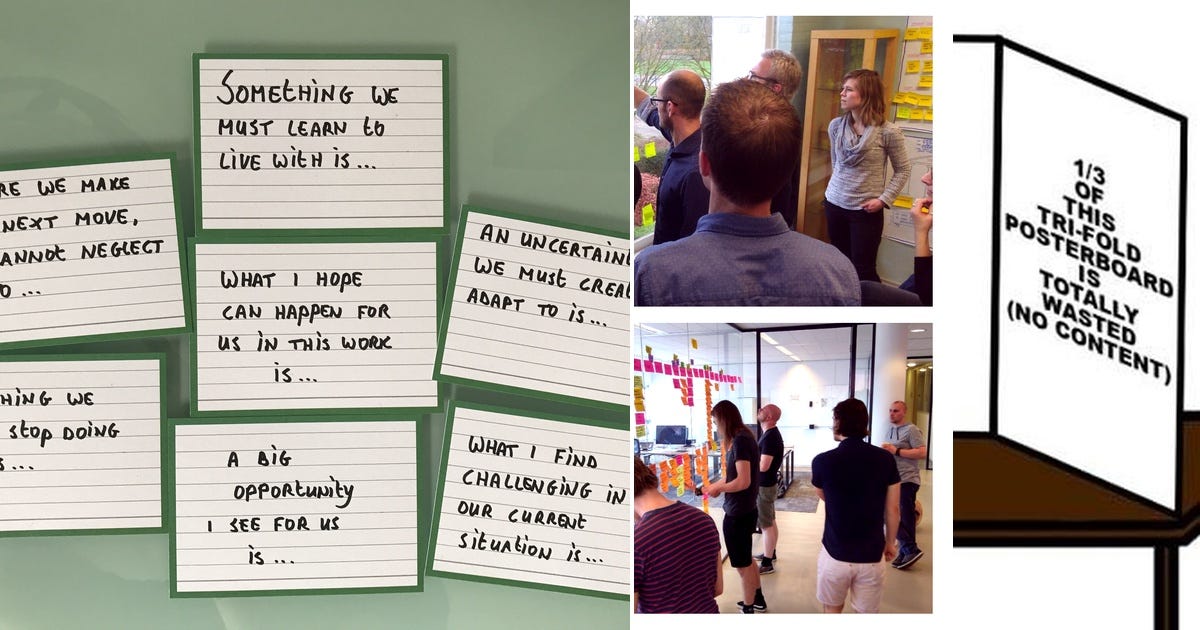 SOMETHING WE
MUST LEARN to
LIVE WITH iS...
RE WE MAKE
NEXT MOVE,
ANNOt NEGLECT
O...
WHAT I HOPE
CAN HAPPEN FOR
US IN THIS WORK
iS...
AN UNCERTAIN
WE MUST CREA
ADAPT TO iS...
HING WE
STOP DOING
S...
A BIG
OPPORTUNITY
I SEE FOR US
iS...
WHAT I FIND
CHALLENGING IN
OUR CURRENT
SITUATION iS...
1/3
OF
THIS
TRI-FOLD
POSTERBOARD
IS
TOTALLY
WASTED
(NO CONTENT)